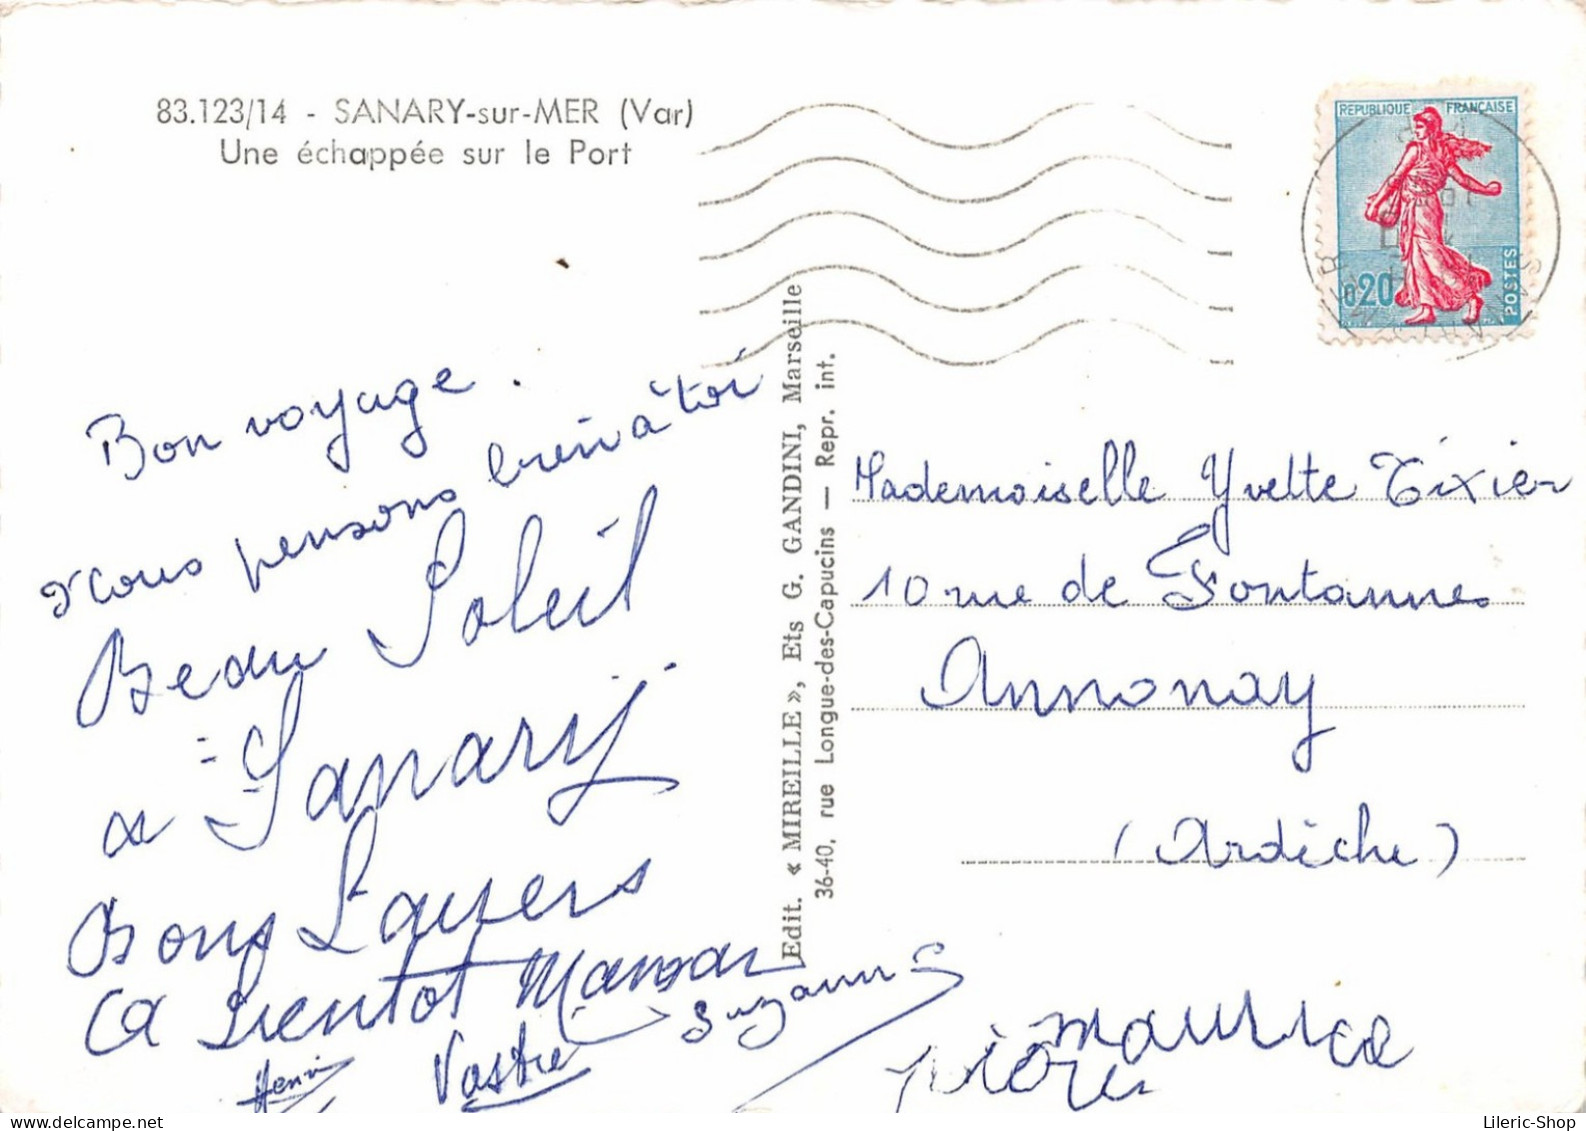 83.123/14 - SANARY-sur-MER (Var)
Une échappée sur le Port
REPUBLIQUE FRANÇAISE
0,20
POSTES
Bon voyage.
Nous pensons bien à toi
Beau Soleil
à Sanary
Bons Baisers
A Bientot Maman
Henri
Suzanne
Maurice
Edit. « MIREILLE », Ets G. GANDINI, Marseille
36-40, rue Longue-des-Capucins — Repr. int.
Mademoiselle Yvette Tixier
10 rue de Fontannes
Annonay
(Ardèche)
Lileric-Shop